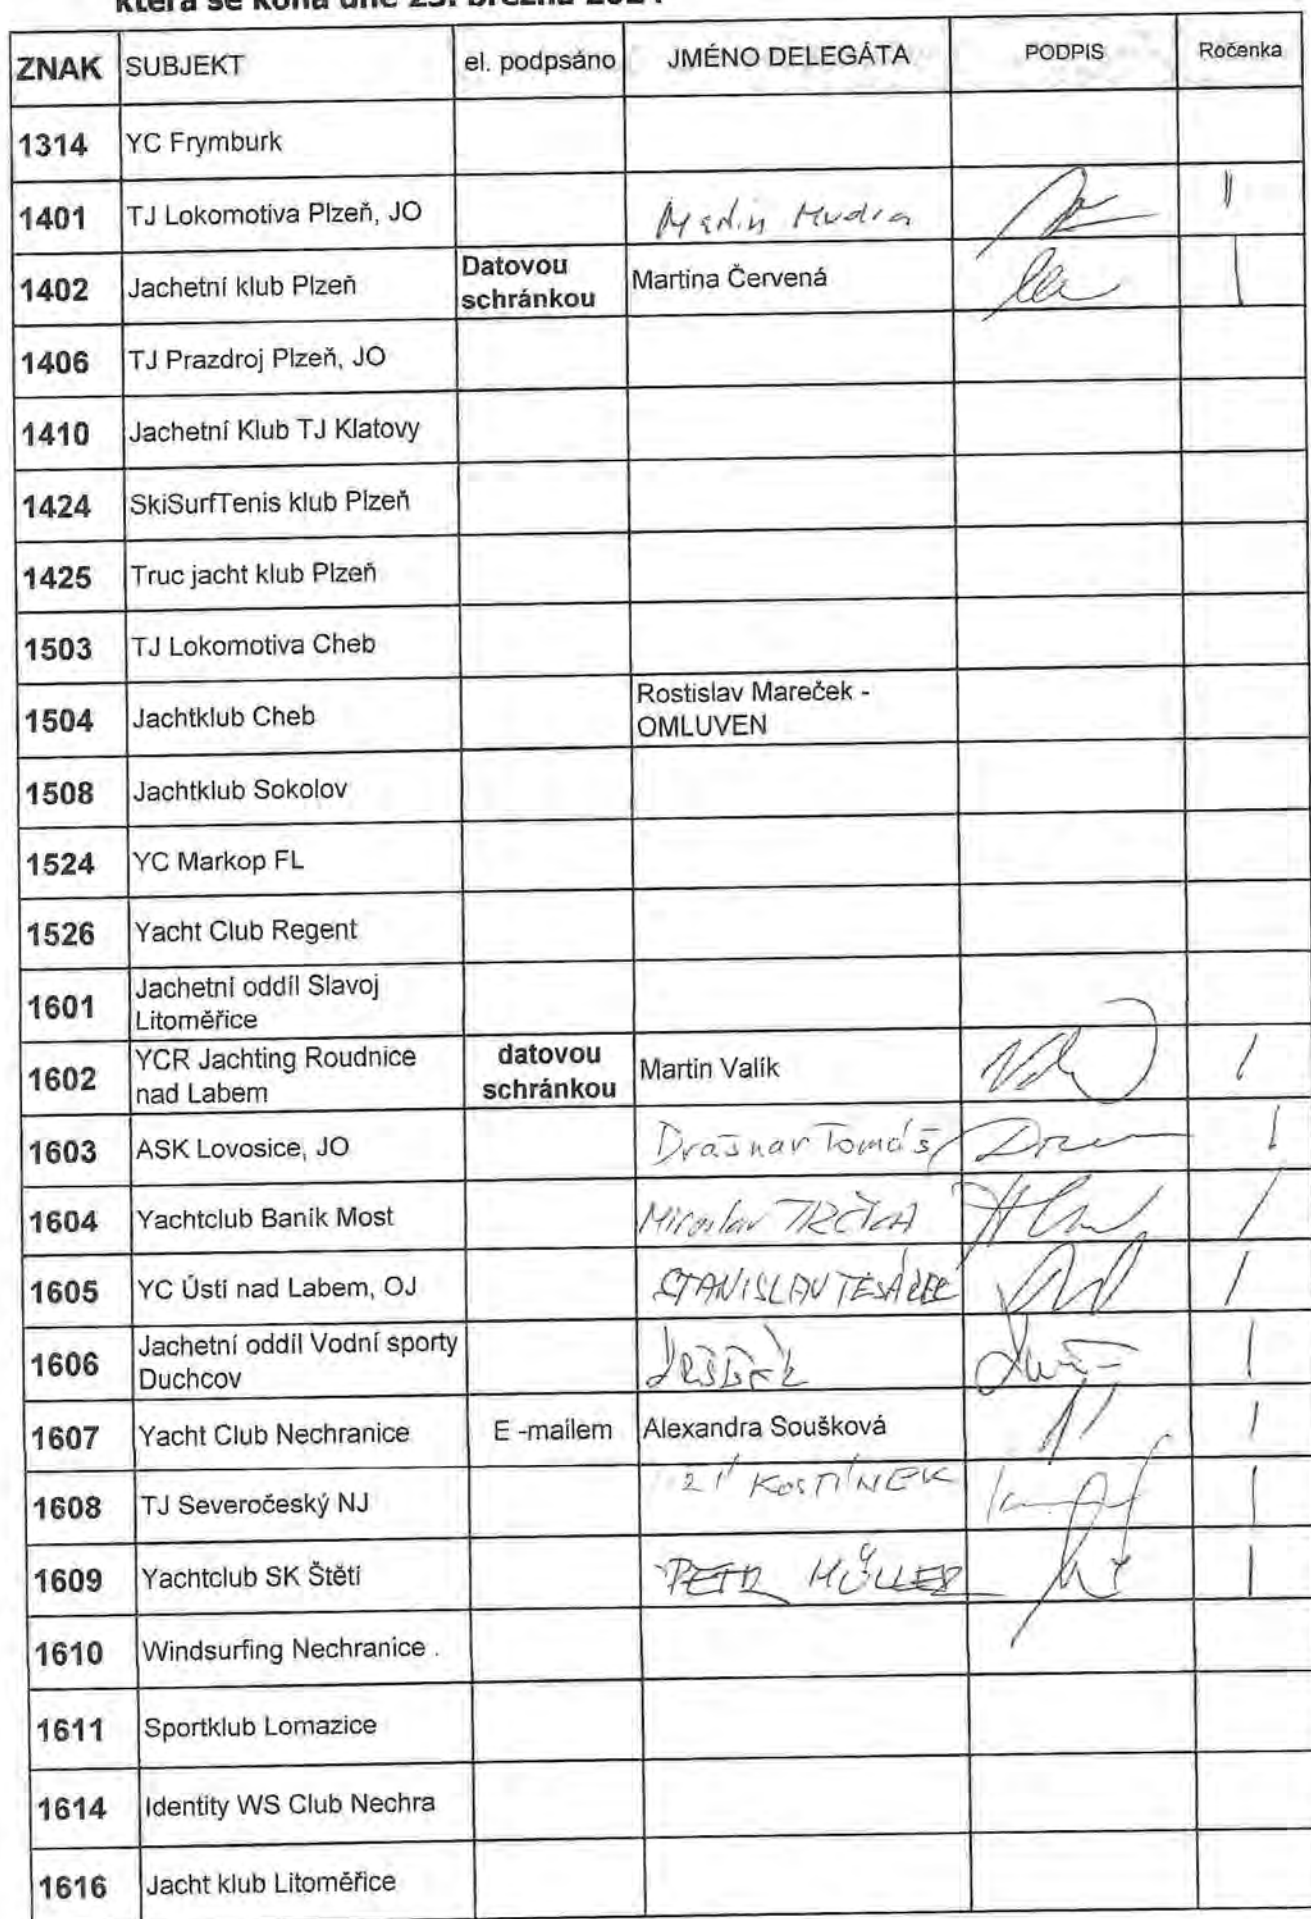 která se koná dne 23. března 2024
ZNAK SUBJEKT el. podpsáno JMÉNO DELEGÁTA PODPIS Ročenka
1314 YC Frymburk
1401 TJ Lokomotiva Plzeň, JO Martin Mudra
1402 Jachetní klub Plzeň Datovou schránkou Martina Červená
1406 TJ Prazdroj Plzeň, JO
1410 Jachetní Klub TJ Klatovy
1424 SkiSurfTenis klub Plzeň
1425 Truc jacht klub Plzeň
1503 TJ Lokomotiva Cheb
1504 Jachtklub Cheb Rostislav Mareček - OMLUVEN
1508 Jachtklub Sokolov
1524 YC Markop FL
1526 Yacht Club Regent
1601 Jachetní oddíl Slavoj Litoměřice
1602 YCR Jachting Roudnice nad Labem datovou schránkou Martin Valík
1603 ASK Lovosice, JO Drašnar Tomáš
1604 Yachtclub Baník Most Miroslav TRČKA
1605 YC Ústí nad Labem, OJ STANISLAV TESÁREK
1606 Jachetní oddíl Vodní sporty Duchcov
1607 Yacht Club Nechranice E -mailem Alexandra Soušková
1608 TJ Severočeský NJ KOSTÍNEK
1609 Yachtclub SK Štětí PETR MÜLLER
1610 Windsurfing Nechranice .
1611 Sportklub Lomazice
1614 Identity WS Club Nechra
1616 Jacht klub Litoměřice